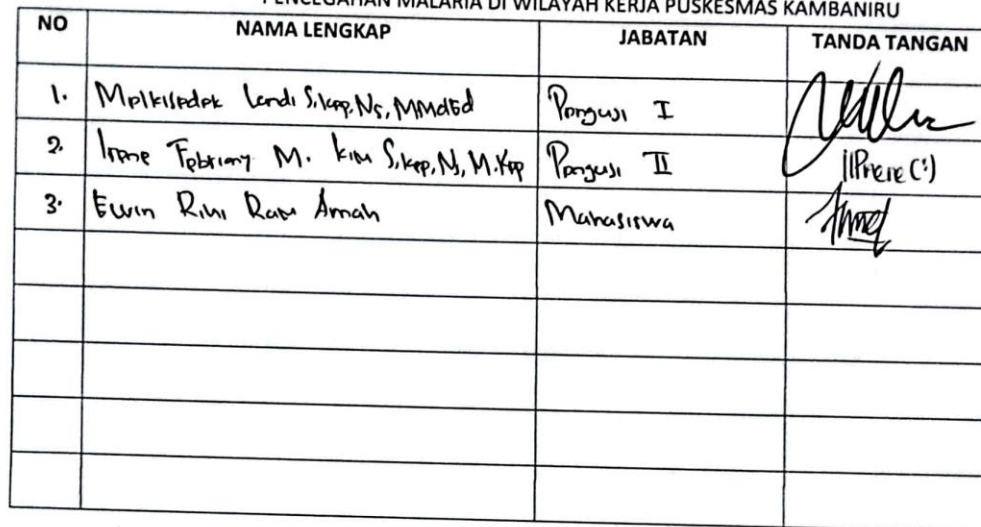 PENCEGAHAN MALARIA DI WILAYAH KERJA PUSKESMAS KAMBANIRU
NO NAMA LENGKAP JABATAN TANDA TANGAN
1. Melkisedek Landi S.kep, Ns, MMedEd Penguji I
2. Irene Febriany M. Kiu S.kep, Ns, M.Kep Penguji II
3. Erwin Rihi Ratu Amah Mahasiswa